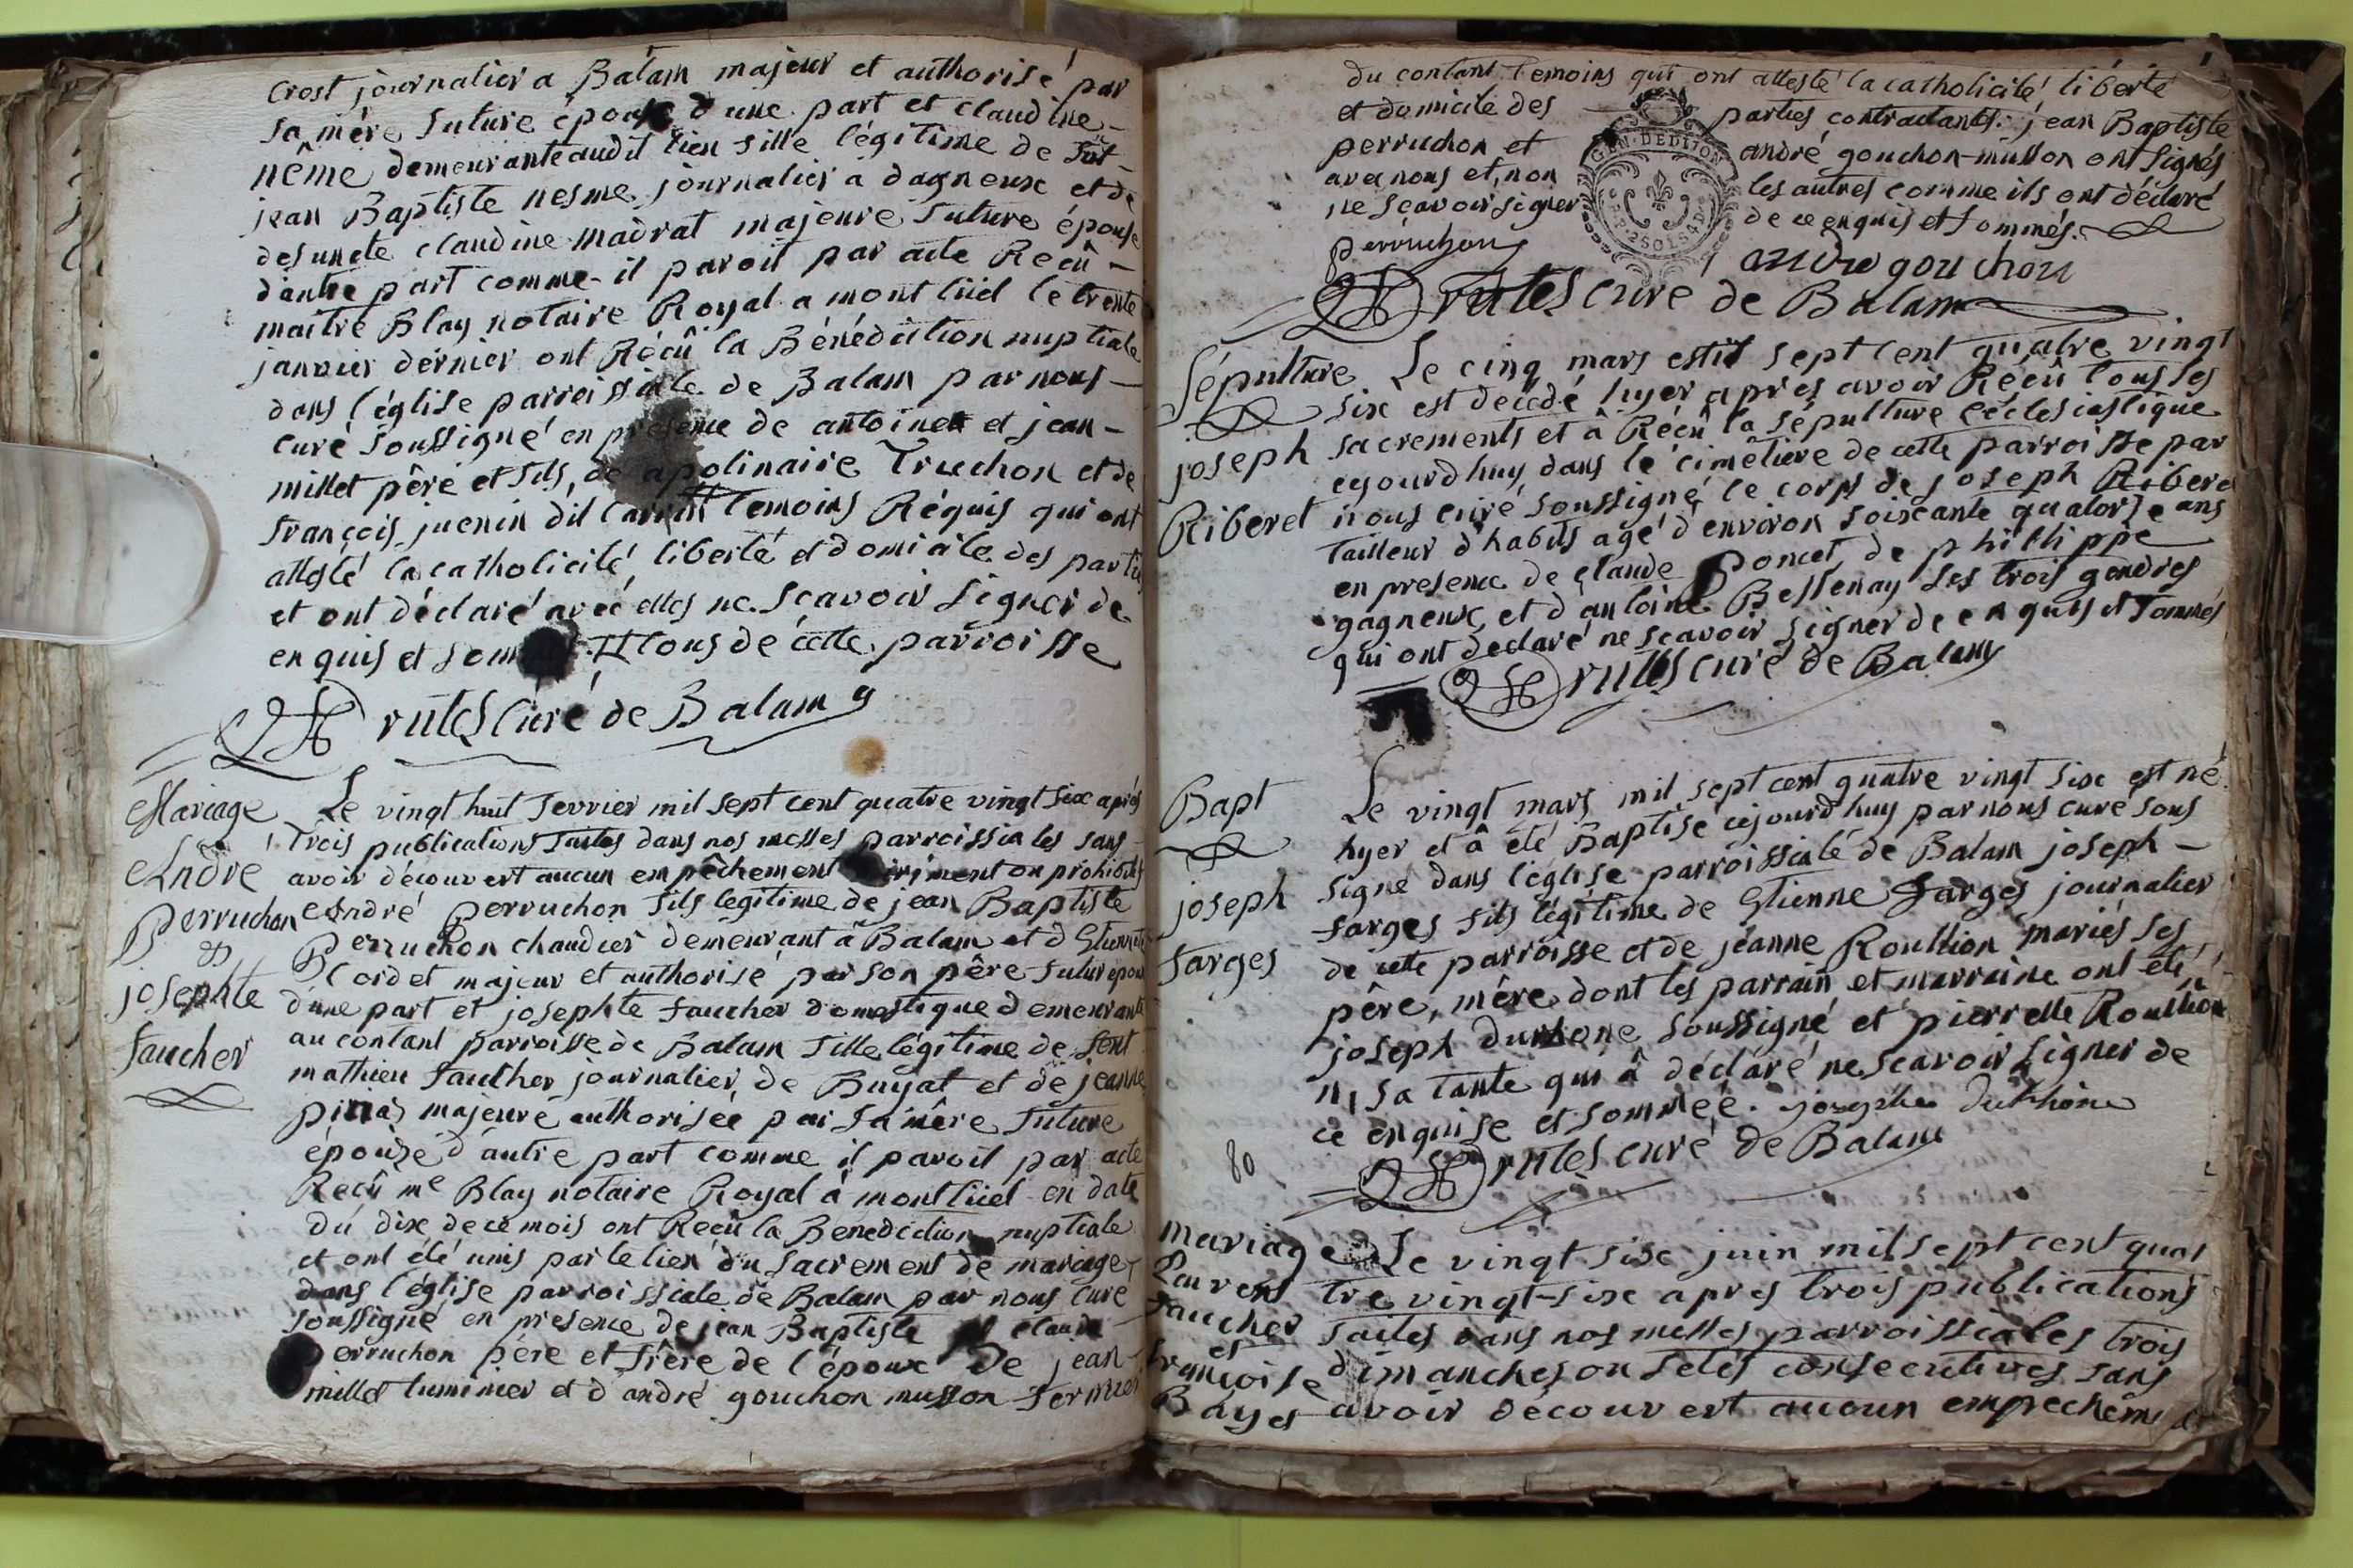 crost journalier a Balam majeur et authorisé par
sa mère future épouse d'une part et claudine
nême demeurante audit lieu fille légitime de
jean Baptiste nesme journalier à dagneux et de
defuncte claudine madrat majeure future épouse
d'autre part comme il paroit par acte Reçû
maitre Blay notaire Royal a montlüel le trente
janvier dernier ont Réçû la Bénédiction nuptiale
dans l'église parroissiale de Balam par nous
curé soussigné en présence de antoine et jean
millet père et fils, de apolinaire Truchon et de
françois juenin dit temoins Réquis qui ont
attesté la catholicité, liberté et domicile des parties
et ont déclaré avec elles ne scavoir signer de
enquis et som tous de cette parroisse
Brutes curé de Balam
Mariage
André
Perruchon
et
josephte
faucher
Le vingt huit fevrier mil sept cent quatre vingt six après
trois publications faites dans nos messes parroissiales sans
avoir découvert aucun empêchement diriment ou prohibitif
André Perruchon fils legitime de jean Baptiste
Perruchon chaudier demeurant à Balam et d'Etiennette
Cordet majeur et authorisé par son père futur epoux
d'une part et josephte faucher domestique demeurante
au contant parroisse de Balam fille légitime de feu
mathieu faucher journalier de Buyat et de jeanne
pinas majeure authorisée par sa mère future
épouze d'autre part comme il paroit par acte
Reçû me Blay notaire Royal à montlüel en date
du dix de ce mois ont Reçû la Bénédiction nuptiale
et ont été unis par le lien du sacrement de mariage
dans l'église parroissiale de Balam par nous curé
soussigné en présence de jean Baptiste et claude
perruchon père et frère de l'époux de jean
millet luminier et d'andré gouchon musson fermier
du contant temoins qui ont attesté la catholicité liberté
et domicile des parties contractants. jean Baptiste
perruchon et andré gouchon-musson ont signés
avec nous et non les autres comme ils ont déclaré
ne scavoir signer de ce enquis et sommés.
GEN. DE DIJON
perruchon andre gouchon
Brutes curé de Balam
Sépulture
joseph
Riberet
Le cinq mars sept cent quatre vingt
six est décédé hyer apres avoir Réçû tous ses
sacrements et à Réçû la sépulture écclesiastique
cejourd'huy dans le cimetière de cette parroisse par
nous curé soussigné le corps de joseph Riberet
tailleur d'habits agé d'environ soixante quatorze ans
en presence de claude Poncet, de phillippe
gagneux, et d'antoine Bestenay ses trois gendres
qui ont déclaré ne scavoir signer de enquis et sommés
Brutes curé de Balam
Bapt
joseph
farges
Le vingt mars mil sept cent quatre vingt six est né
hyer et à été Baptisé cejourd'huy par nous curé sous
signé dans l'église parroissiale de Balam joseph
farges fils légitime de Etienne farges journalier
de cette parroisse et de jeanne Roullion mariés ses
père, mère dont les parrain et marraine ont été
joseph durhone soussigné et pierrette Roullion
sa tante qui à déclaré ne scavoir signer de
ce enquise et sommée. josephe duRhône
Brutes curé de Balam
80
Mariage
Laurent
faucher
et
françoise
Bayet
Le vingt six juin mil sept cent qua
tre vingt-six apres trois publications
faites dans nos messes parroissiales trois
dimanches ou fetes consecutives sans
avoir découvert aucun empechem